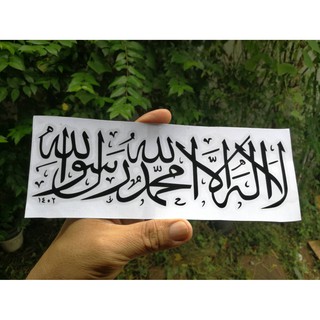 لا إله إلا الله محمد رسول الله
١٤٠٢